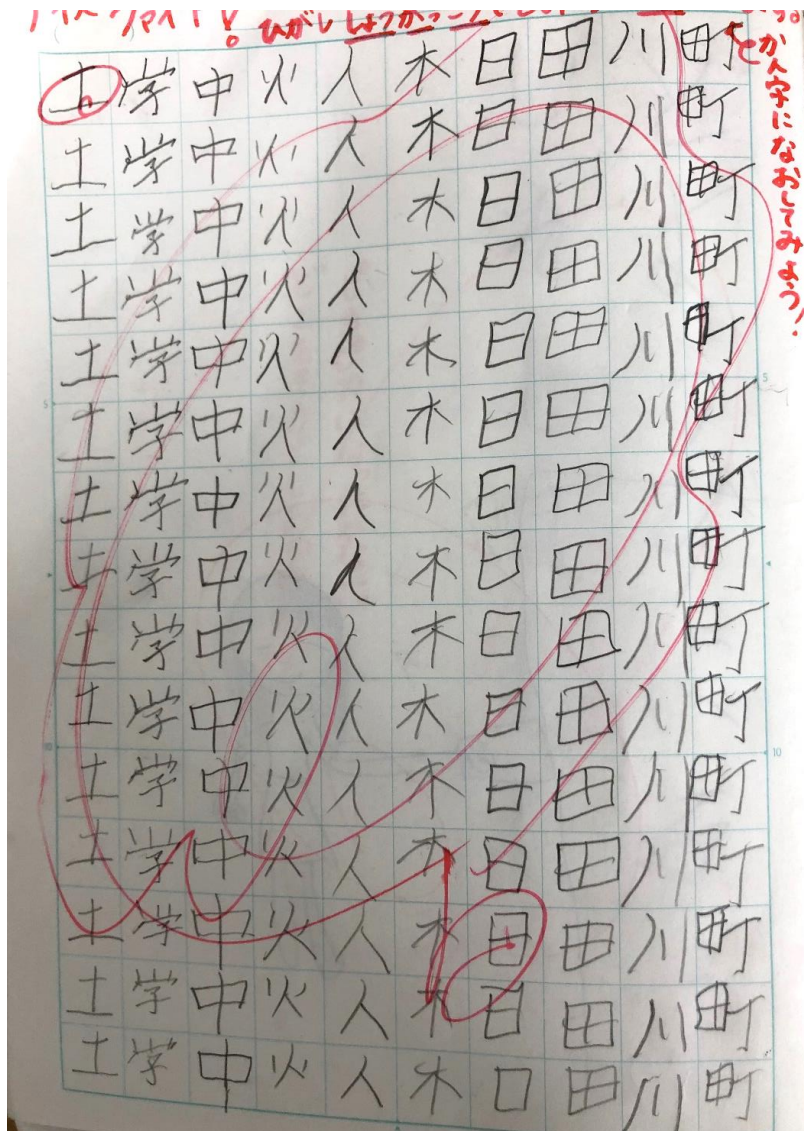 ひがししょうがっこう
かん字になおしてみよう!
町町町町町町町町町町町町町町町
川川川川川川川川川川川川川川川
田田田田田田田田田田田田田田田
日日日日日日日日日日日日日日口
木木木木木木木木木木木木木木木
人人人人人人人人人人人人人人人
火火火火火火火火火火火火火火火
中中中中中中中中中中中中中中中
学学学学学学学学学学学学学学学
土土土土土土土土土土土土土土土
5
10
5